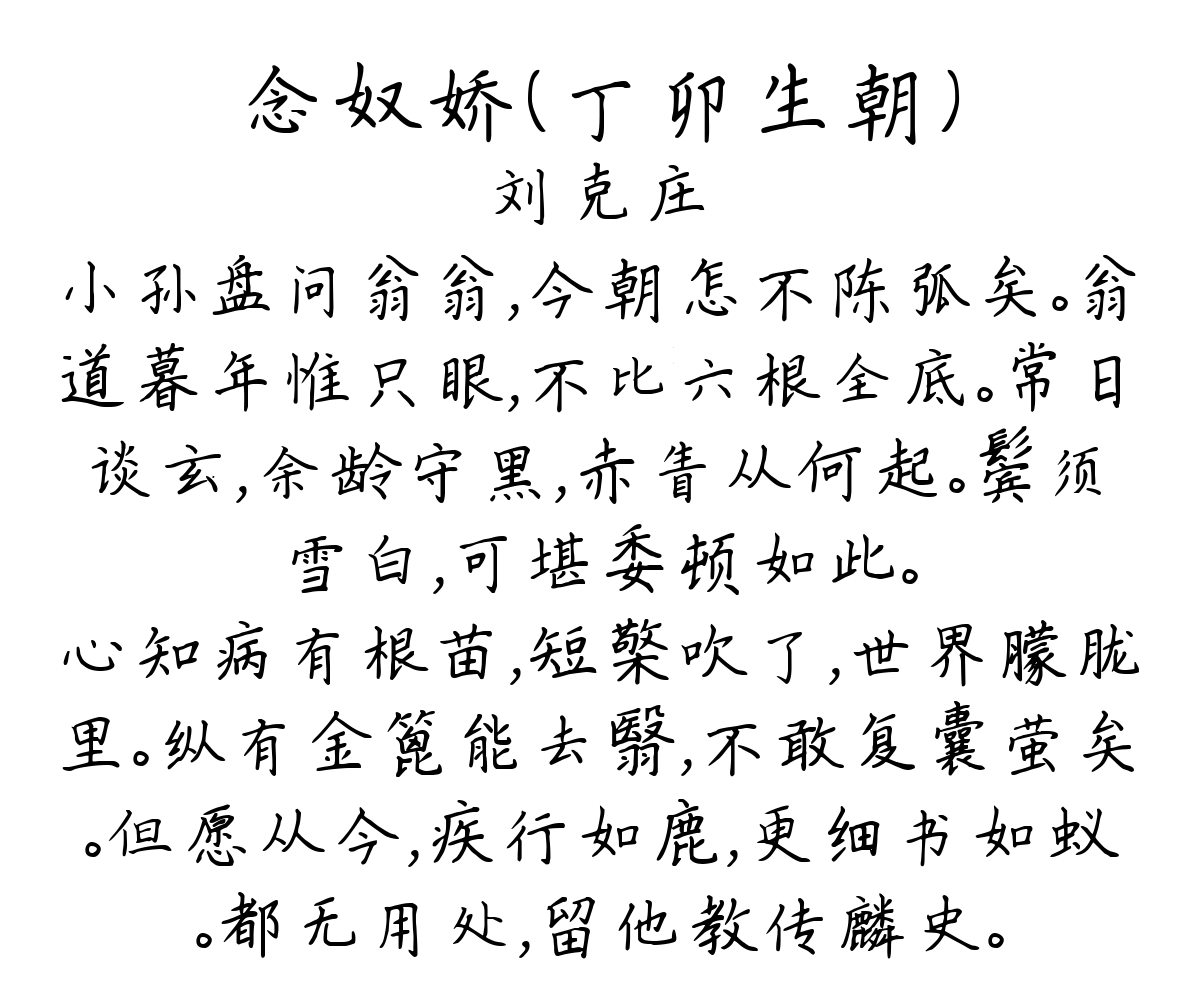 念奴娇(丁卯生朝)
刘克庄
小孙盘问翁翁,今朝怎不陈弧矣。翁
道暮年惟只眼,不比六根全底。常日
谈玄,余龄守黑,赤眚从何起。鬓须
雪白,可堪委顿如此。
心知病有根苗,短檠吹了,世界朦胧
里。纵有金篦能去翳,不敢复囊萤矣
。但愿从今,疾行如鹿,更细书如蚁
。都无用处,留他教传麟史。